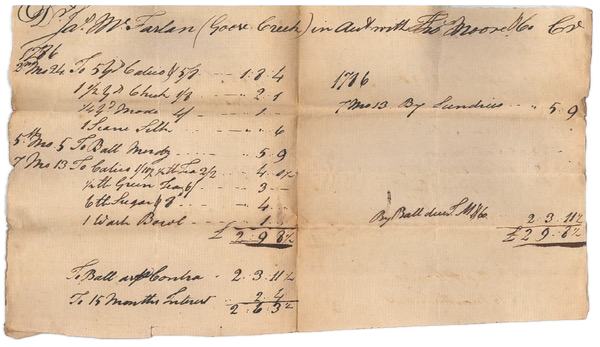 Dr Jas. McFarlan (Goose Creek) in Acct with Thos Moore & Co Cr
1786
2nd Mo 24 To 5 Yds Calico @ 5/8 1 . 8 . 4
1 1/2 Yd Check 2 . 1
1/4 Yd Mode 4/ 1 . -
1 Scane Silk 6
5th Mo 5 To Ball Mendg 5 . 9
7 Mo 13 To Calico Tea 2/2 4 . 0 1/2
1/2 lb Green Tea 6/ 3 -
6 lb Sugar @ 8d 4 -
1 Wash Bowl 1 . -
£ 2 . 9 . 8 1/2
To Ball as Contra 2 . 3 . 11 1/2
To 15 Months Interest 2 . 4
2 . 6 . 3 1/2
1786
7 Mo 13 By Sundries 5 . 9
By Ball due T M & Co 2 . 3 . 11 1/2
£ 2 9 . 8 1/2